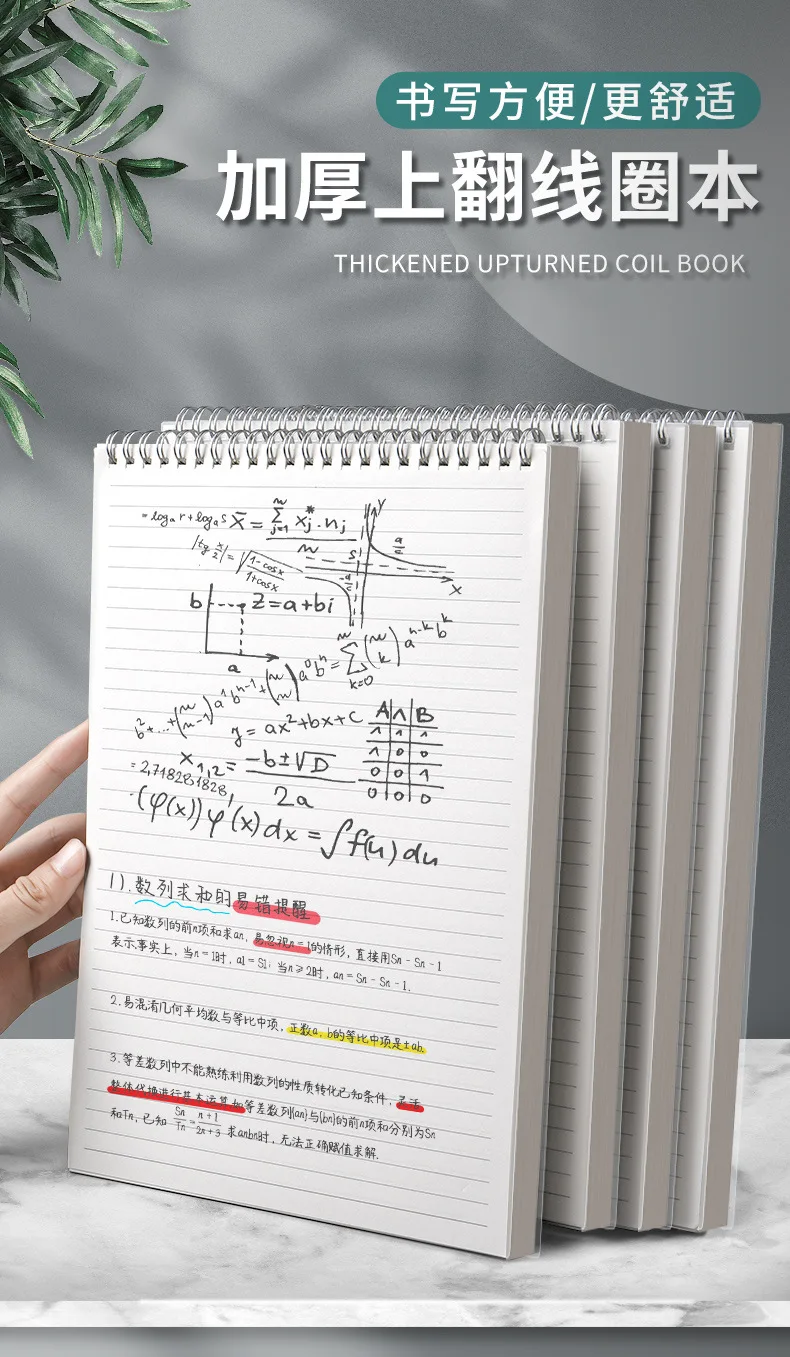 书写方便/更舒适
加厚上翻线圈本
THICKENED UPTURNED COIL BOOK
= logₐ r + logₐ s
x̄ = ∑ⱼ₌₁ xⱼ* · nⱼ
|tg x/2| = √(1-cosx/1+cosx)
y
a/c
s
-a/c
x
b z = a + bi
a
b² + ... + (n-1) a¹ bⁿ⁻¹ + ( ) a⁰ bⁿ = ∑ₖ₌₀ ( k) aⁿ⁻ᵏ bᵏ
y = ax² + bx + c
A ∧ B
1 1 1
1 0 0
0 0 1
0 0 0
x₁,₂ = -b ± √D / 2a
= 2,718281828,
(φ(x)) φ'(x) dx = ∫ f(u) du
1). 数列求和的易错提醒
1.已知数列的前n项和求an, 易忽视n = 1的情形, 直接用Sn - Sn - 1
表示事实上, 当n = 1时, a1 = S1; 当n ≥ 2时, an = Sn - Sn - 1.
2.易混淆几何平均数与等比中项, 正数a, b的等比中项是±ab.
3.等差数列中不能熟练利用数列的性质转化已知条件, 灵活
整体代换进行基本运算如等差数列(an)与(bn)的前n项和分别为Sn
和Tn, 已知 Sn/Tn = n+1/2n+3 求anbn时, 无法正确赋值求解.